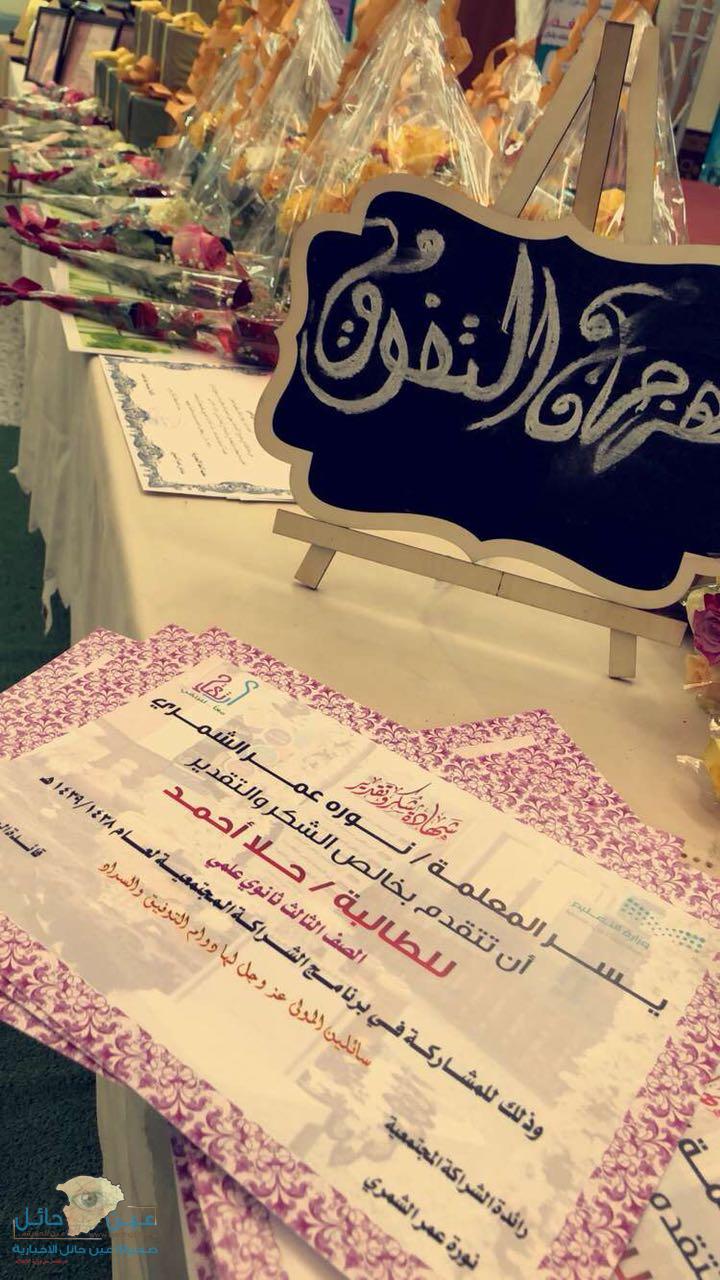 مهرجان التفوق
ارتقاء
شهادة شكر وتقدير
وزارة التعليم
يسر المعلمة / نوره عمر الشمري
أن تتقدم بخالص الشكر والتقدير
للطالبة / حلا أحمد
الصف الثالث ثانوي علمي
وذلك للمشاركة في برنامج الشراكة المجتمعية لعام ١٤٣٨/١٤٣٩هـ
سائلين المولى عز وجل لها دوام التوفيق والسداد
رائدة الشراكة المجتمعية
نورة عمر الشمري
قائدة
عين حائل
صحيفة عين حائل الاخبارية